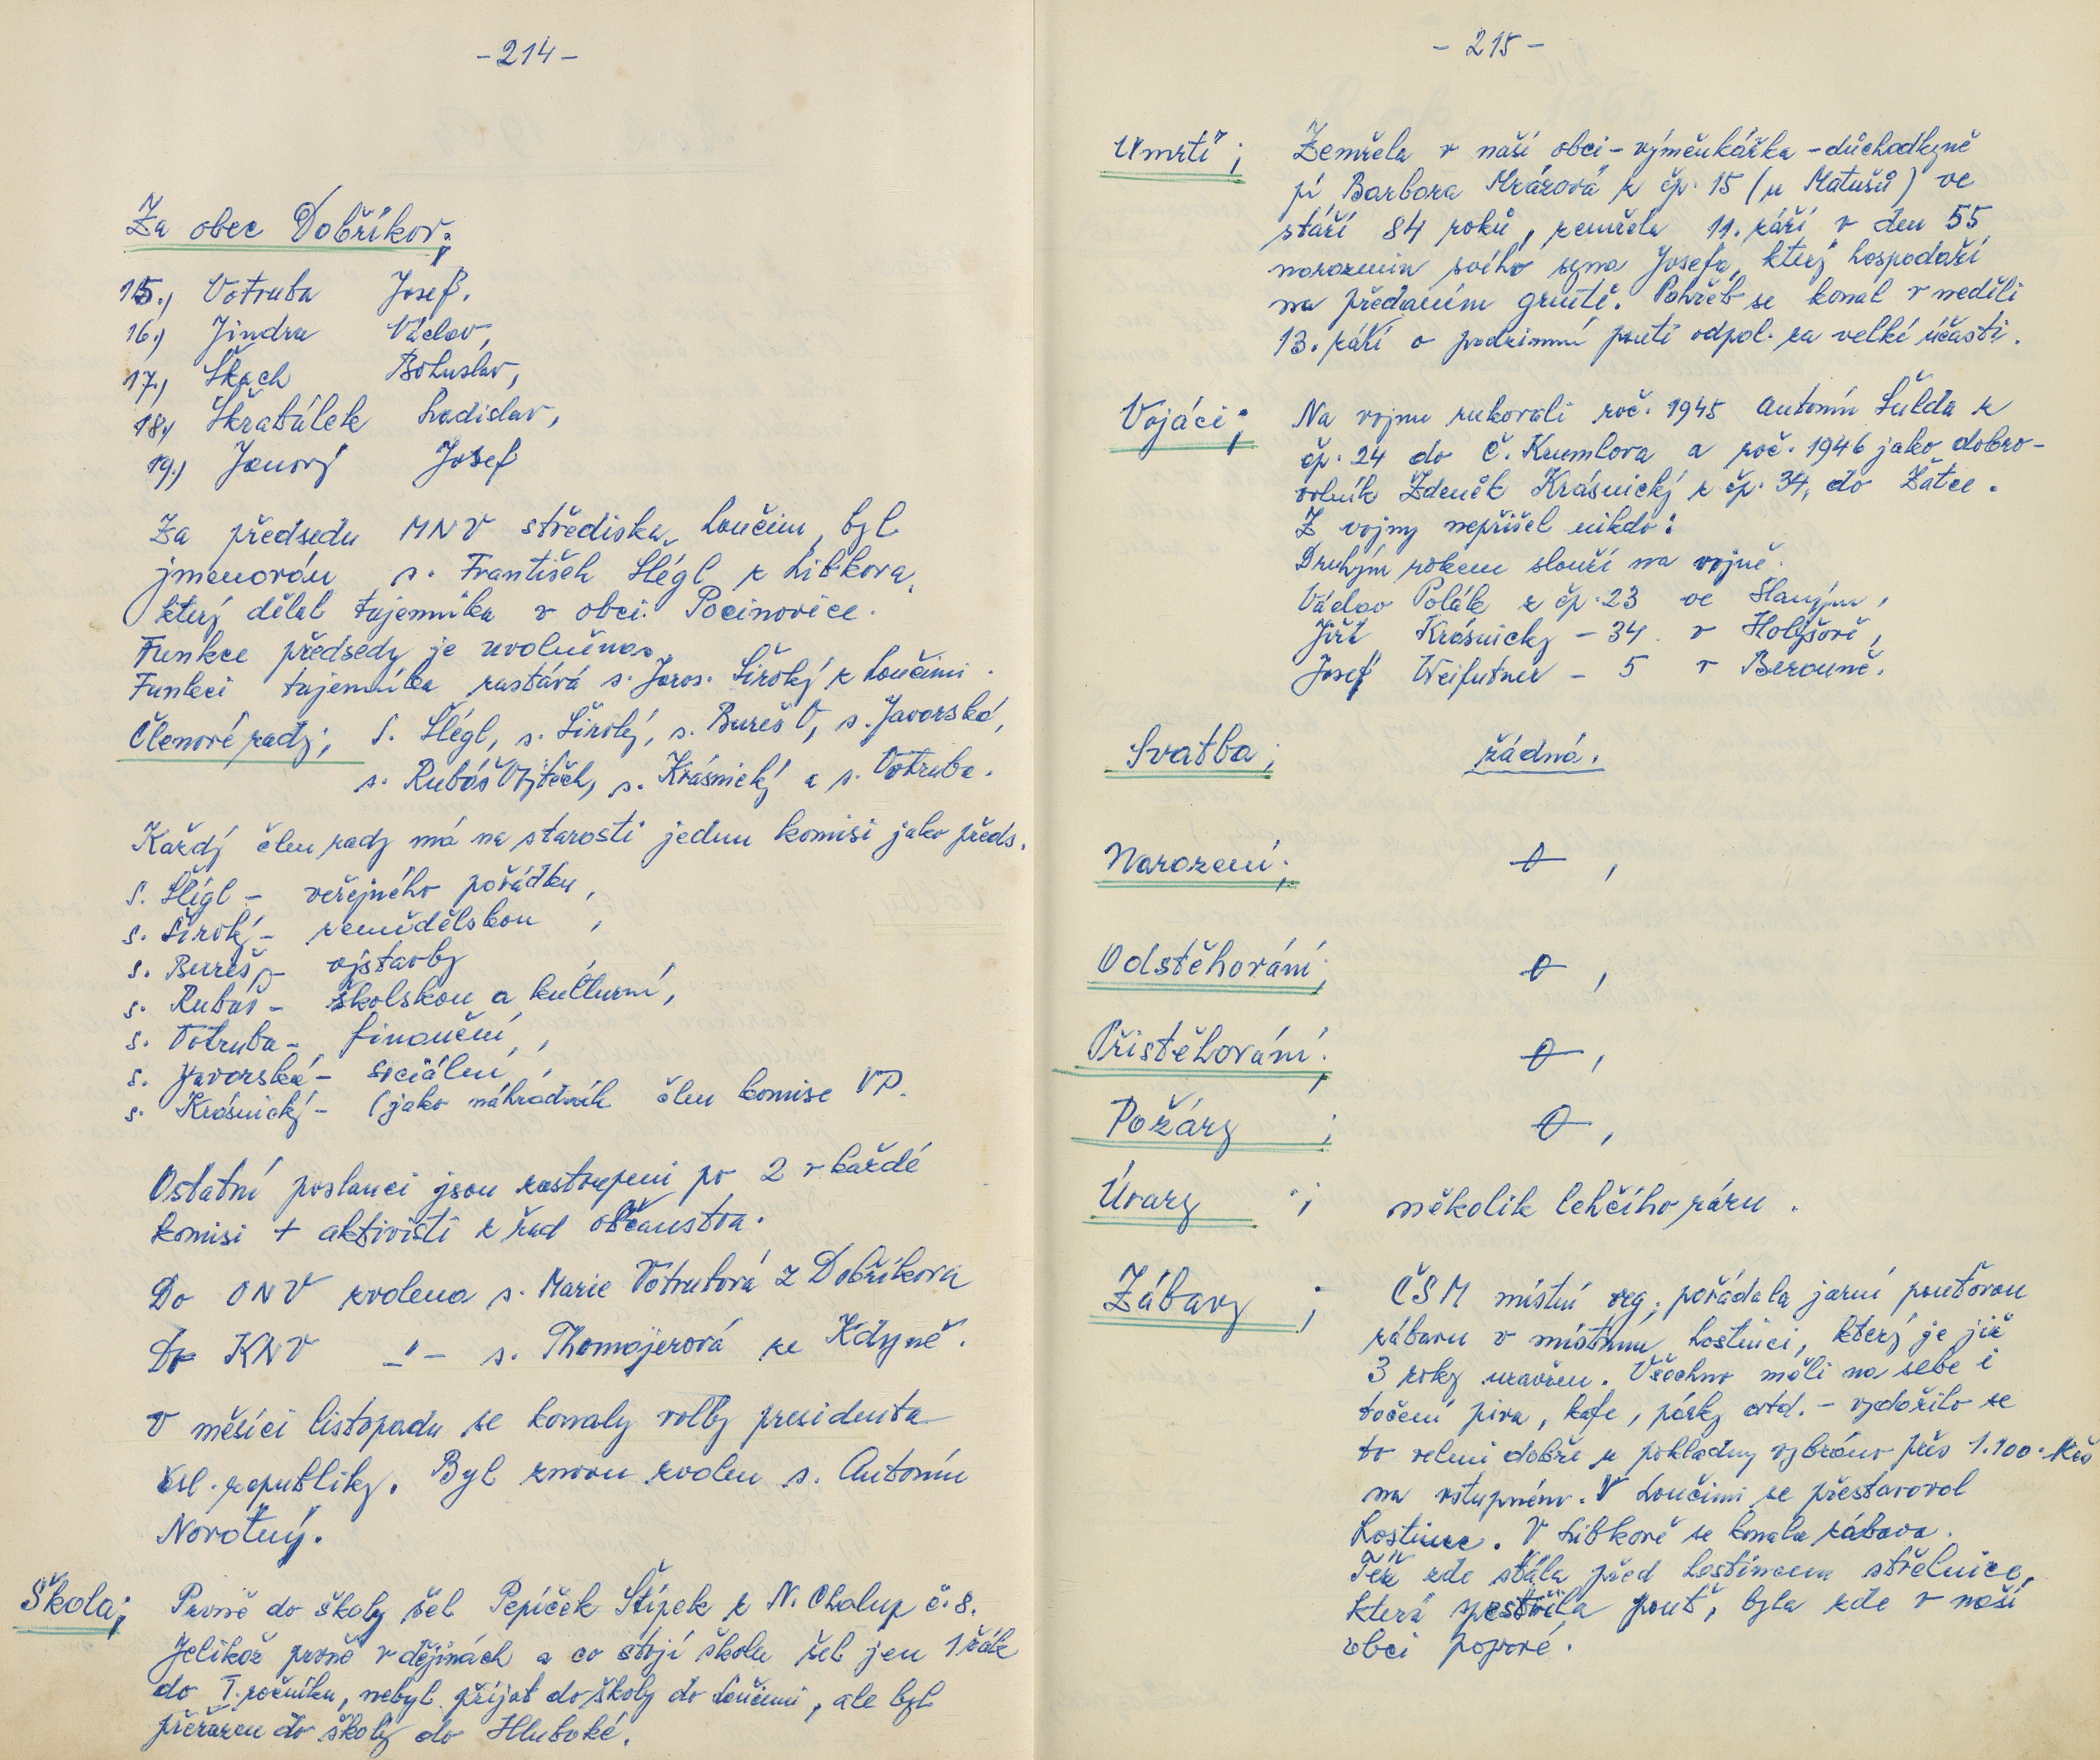 -214-
Za obec Dobříkov;
15.) Votruba Josef.
16.) Jindra Václav,
17.) Škach Bohuslav,
18.) Škrabálek Ladislav,
19.) Janový Josef
Za předsedu MNV střediska Loučim, byl
jmenován s. František Šlégl z Libkova,
který dělal tajemníka v obci Pocinovice.
Funkce předsedy je uvolněna.
Funkci tajemníka zastává s. Jaros. Široký z Loučimi.
Členové rady; S. Šlégl, s. Široký, s. Bureš V, s. Javorská,
s. Rubáš Vojtěch, s. Krásnický a s. Votruba.
Každý člen rady má na starosti jednu komisi jako předs.
s. Šlégl - veřejného pořádku,
s. Široký - zemědělskou,
s. Bureš - výstavby
s. Rubáš - školskou a kulturní,
s. Votruba - finanční,
s. Javorská - sociální,
s. Krásnický - (jako náhradník člen komise VP.
Ostatní poslanci jsou zastoupeni po 2 v každé
komisi + aktivisti z řad občanstva.
Do ONV zvolena s. Marie Votrubová z Dobříkova
Do KNV -"- s. Thomayerová ze Kdyně.
V měsíci listopadu se konaly volby presidenta
čsl. republiky. Byl znovu zvolen s. Antonín
Novotný.
Škola; Prvně do školy šel Pepíček Štípek z N. Chalup č. 8.
Jelikož prvně v dějinách a co stojí škola šel jen 1 žák
do I. ročníku, nebyl přijat do školy do Loučimi, ale byl
přeřazen do školy do Hluboké.
-215-
Úmrtí; Zemřela v naší obci - výměnkářka - důchodkyně
pí Barbora Mrázová z čp. 15 (u Matušů) ve
stáří 84 roků, zemřela 11. září v den 55
narozenin svého syna Josefa, který hospodaří
na předaném gruntě. Pohřeb se konal v neděli
13. září o podzimní pouti odpol. za velké účasti.
Vojáci; Na vojnu rukovali roč. 1945 Antonín Šulda z
čp. 24 do Č. Krumlova a roč. 1946 jako dobro-
volník Zdeněk Krásnický z čp. 34, do Žatce.
Z vojny nepřišel nikdo:
Druhým rokem slouží na vojně.
Václav Polák z čp. 23 ve Slaným,
Jiří Krásnický - 34 v Holýšově,
Josef Weifutner - 5 v Berouně.
Svatba; žádná.
Narození; 0,
Odstěhování; 0,
Přistěhování; 0,
Požáry; 0,
Úrazy; několik lehčího rázu.
Zábavy; ČSM místní org. pořádala jarní pouťovou
zábavu v místním hostinci, který je již
3 roky uzavřen. Všechno měli na sebe i
točení piva, kafe, párky atd. - vydařilo se
to velmi dobře u pokladny vybráno přes 1.100.- Kčs
na vstupném. V Loučimi se přestavoval
hostinec. V Libkově se konala zábava.
Též zde stála před hostincem střelnice,
která zpestřila pouť, byla zde v naší
obci poprvé.